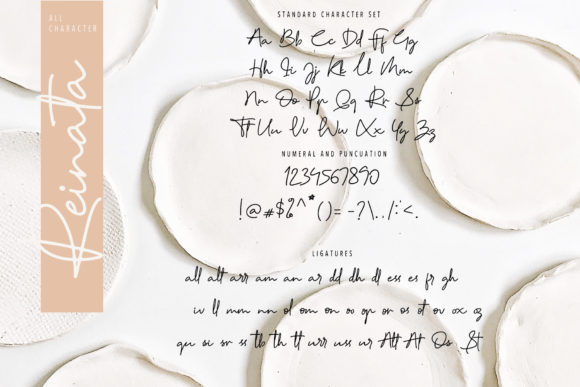 ALL
CHARACTER
Reinata
STANDARD CHARACTER SET
Aa Bb Cc Dd Ff Gg
Hh Ii Jj Kk Ll Mm
Nn Oo Pp Qq Rr Ss
Tt Uu Vv Ww Xx Yy Zz
NUMERAL AND PUNCUATION
1234567890
!@#$%^*()= -?\../:<.
LIGATURES
all alt arr am an ar dd dh dl ess es fr gh
iv ll mm nn ol om on oo op or os ot ov ox oz
qu si sr ss tb th tt urr uss ur All At Os St